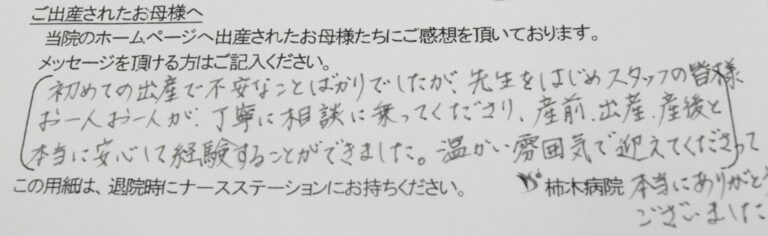 ご出産されたお母様へ
当院のホームページへ出産されたお母様たちにご感想を頂いております。
メッセージを頂ける方はご記入ください。
初めての出産で不安なことばかりでしたが、先生をはじめスタッフの皆様
お一人お一人が、丁寧に相談に乗ってくださり、産前、出産、産後と
本当に安心して経験することができました。温かい雰囲気で迎えてくださって
この用紙は、退院時にナースステーションにお持ちください。 柿木病院 本当にありがとう
ございました